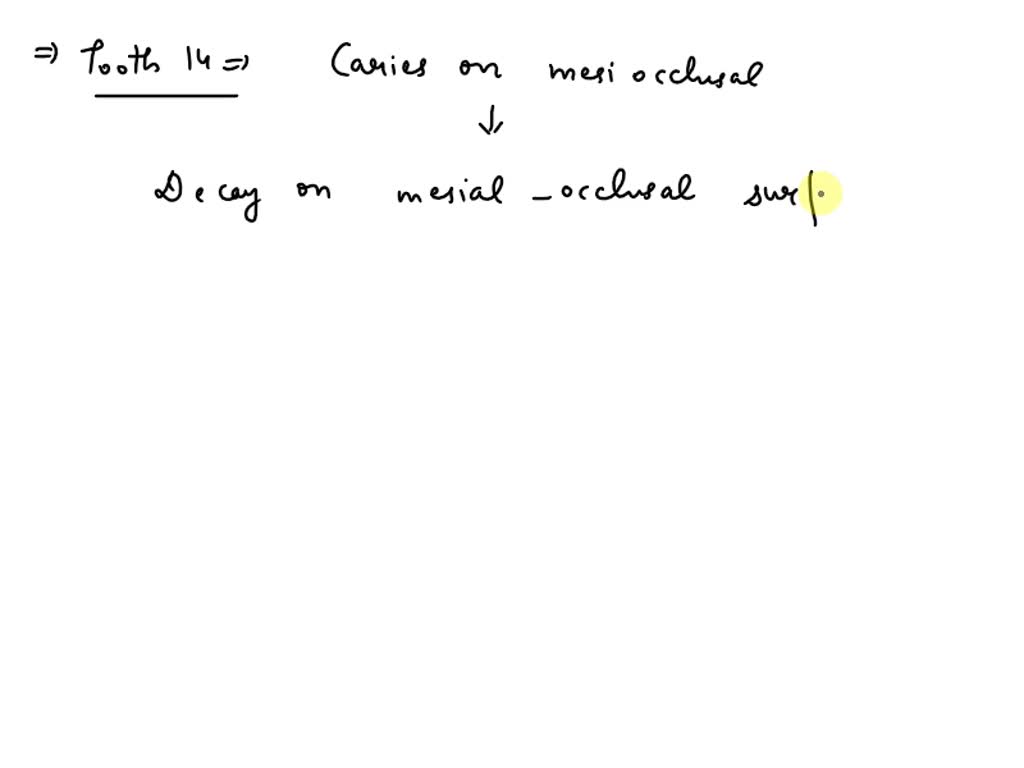 ⇒ Tooth 14 ⇒ Caries on mesiocclusal
↓
Decay on mesial - occlusal surf